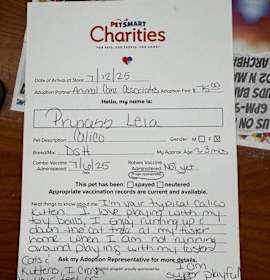 PETSMART
Charities
FOR PETS. FOR PEOPLE. FOR GOOD.
Date of Arrival at Store: 7/12/25
Adoption Partner: Animal Care Associates Adoption Fee: $75.00
Hello, my name is:
Princess Leia
Pet Description: Calico Gender: M F
Breed/Mix: DSH My Approx. Age: 2-3 mos
Combo Vaccine Administered: 7/6/25 Rabies Vaccine Administered: Not yet
(if age appropriate)
This pet has been: spayed neutered
Appropriate vaccination records are current and available.
Neat things to know about me: I'm your typical calico
kitten. I love playing with my
toy balls. I enjoy running up &
down the cat tree at my foster
home when I am not running
around playing with my foster
Cats & Ask My Adoption Representative for more details.
Kittens, I am
super playful
US ON
6PM-9
BUDS
ARCHBA